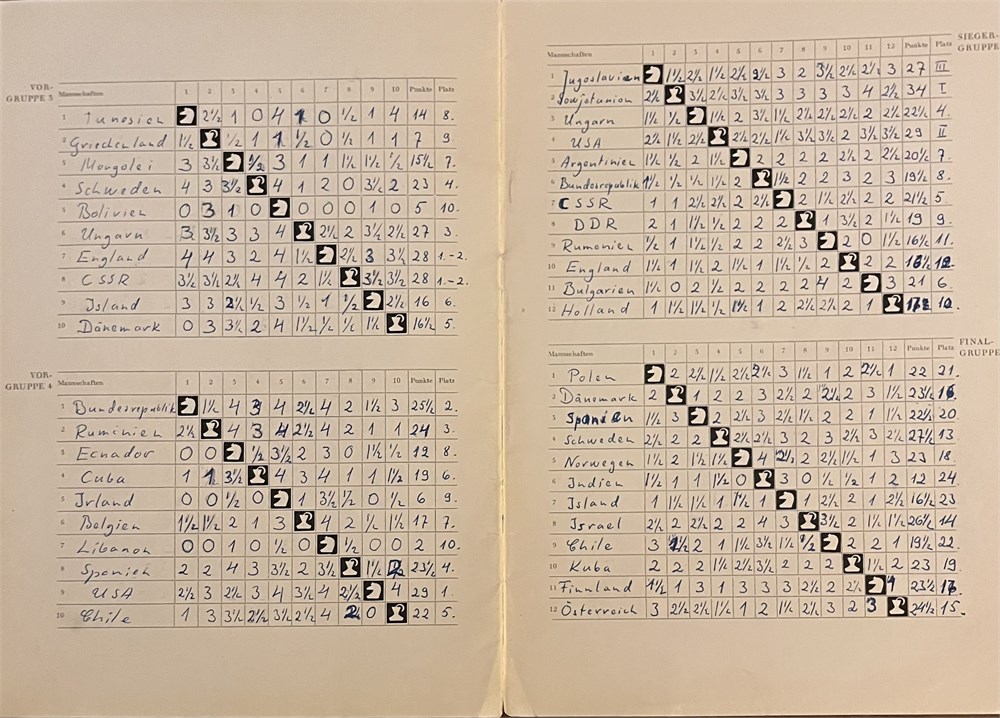 VOR-
GRUPPE 3
Mannschaften 1 2 3 4 5 6 7 8 9 10 Punkte Platz
1 Tunesien 2½ 1 0 4 1 0 ½ 1 4 14 8.
2 Griechenland 1½ ½ 1 1 ½ 0 ½ 1 1 7 9.
3 Mongolei 3 3½ ½ 3 1 1 1½ 1½ ½ 15½ 7.
4 Schweden 4 3 3½ 4 1 2 0 3½ 2 23 4.
5 Bolivien 0 3 1 0 0 0 0 1 0 5 10.
6 Ungarn 3 3½ 3 3 4 2½ 2 3½ 2½ 27 3.
7 England 4 4 3 2 4 1½ 2½ 3 3½ 28 1.-2.
8 CSSR 3½ 3½ 2½ 4 4 2 1½ 3½ 3½ 28 1.-2.
9 Jsland 3 3 2½ ½ 3 ½ 1 ½ 2½ 16 6.
10 Dänemark 0 3 3½ 2 4 1½ ½ ½ 1½ 16½ 5.
VOR-
GRUPPE 4
Mannschaften 1 2 3 4 5 6 7 8 9 10 Punkte Platz
1 Bundesrepublik 1½ 4 3 4 2½ 4 2 1½ 3 25½ 2.
2 Rumänien 2½ 4 3 4 2½ 4 2 1 1 24 3.
3 Ecuador 0 0 ½ 3½ 2 3 0 1½ ½ 12 8.
4 Cuba 1 1 3½ 4 3 4 1 1 1½ 19 6.
5 Jrland 0 0 ½ 0 1 3½ ½ 0 ½ 6 9.
6 Belgien 1½ 1½ 2 1 3 4 2 ½ 1½ 17 7.
7 Libanon 0 0 1 0 ½ 0 ½ 0 0 2 10.
8 Spanien 2 2 4 3 3½ 2 3½ 1½ 23½ 4.
9 USA 2½ 3 2½ 3 4 3½ 4 2½ 4 29 1.
10 Chile 1 3 3½ 2½ 3½ 2½ 4 2 0 22 5.
SIEGER-
GRUPPE
Mannschaften 1 2 3 4 5 6 7 8 9 10 11 12 Punkte Platz
1 Jugoslavien 1½ 2½ 1½ 2½ 2½ 3 2 3½ 2½ 2½ 3 27 III
2 Sowjetunion 2½ 3½ 2½ 3½ 3½ 3 3 3 3 4 2½ 34 I
3 Ungarn 1½ ½ 1½ 2 3½ 1½ 2½ 2½ 2½ 2 2½ 22½ 4.
4 USA 2½ 1½ 2½ 2½ 2½ 1½ 3½ 3½ 2 3 3½ 29 II
5 Argentinien 1½ ½ 2 1½ 2 2 2 2 2½ 2 2½ 20½ 7.
6 Bundesrepublik 1½ ½ ½ 1½ 2 2 2 2 3 2 3 19½ 8.
7 CSSR 1 1 2½ 2½ 2 2 2 1½ 2½ 2 2 21½ 5.
8 DDR 2 1 1½ ½ 2 2 2 1 3½ 2 1½ 19 9.
9 Rumenien ½ 1 1½ ½ 2 2 2½ 3 2 0 1½ 16½ 11.
10 England 1½ 1 1½ 2 1½ 1 1½ ½ 2 2 2 16½ 12.
11 Bulgarien 1½ 0 2 1 2 2 2 2 4 2 3 21 6.
12 Holland 1 1½ 1½ ½ 1½ 1 2 2½ 2½ 2 1 10.
FINAL-
GRUPPE
Mannschaften 1 2 3 4 5 6 7 8 9 10 11 12 Punkte Platz
1 Polen 2 2½ 1½ 2½ 2½ 3 1½ 1 2 2½ 1 22 21.
2 Dänemark 2 1 2 2 3 2½ 2 2½ 2 3 1½ 23½ 16.
3 Spanien 1½ 3 2 2½ 3 2½ 1½ 2 2 1 1½ 22½ 20
4 Schweden 2½ 2 2 2½ 2½ 3 2 3 2½ 3 2½ 27½ 13
5 Norwegen 1½ 2 1½ 1½ 4 2½ 2 2½ 1½ 1 3 23 18.
6 Indien 1½ 1 1 1½ 0 3 0 ½ 1½ 1 2 12 24
7 Jsland 1 1½ 1½ 1 1½ 1 1 2½ 2 1 2½ 16½ 23
8 Jsrael 2½ 2 2½ 2 2 4 3 3½ 2 1½ 1½ 26½ 14
9 Chile 3 2 1 1½ 3½ 1½ ½ 2 2 1 19½ 22.
10 Kuba 2 2 2 1½ 2½ 2½ 2 2 2 1½ 2 23 19.
11 Finnland 1½ 1 3 1 3 3 3 2½ 2 2½ 1 23½
12 Österreich 3 2½ 2½ 1½ 1 2 1½ 2½ 3 2 3 24½ 15.